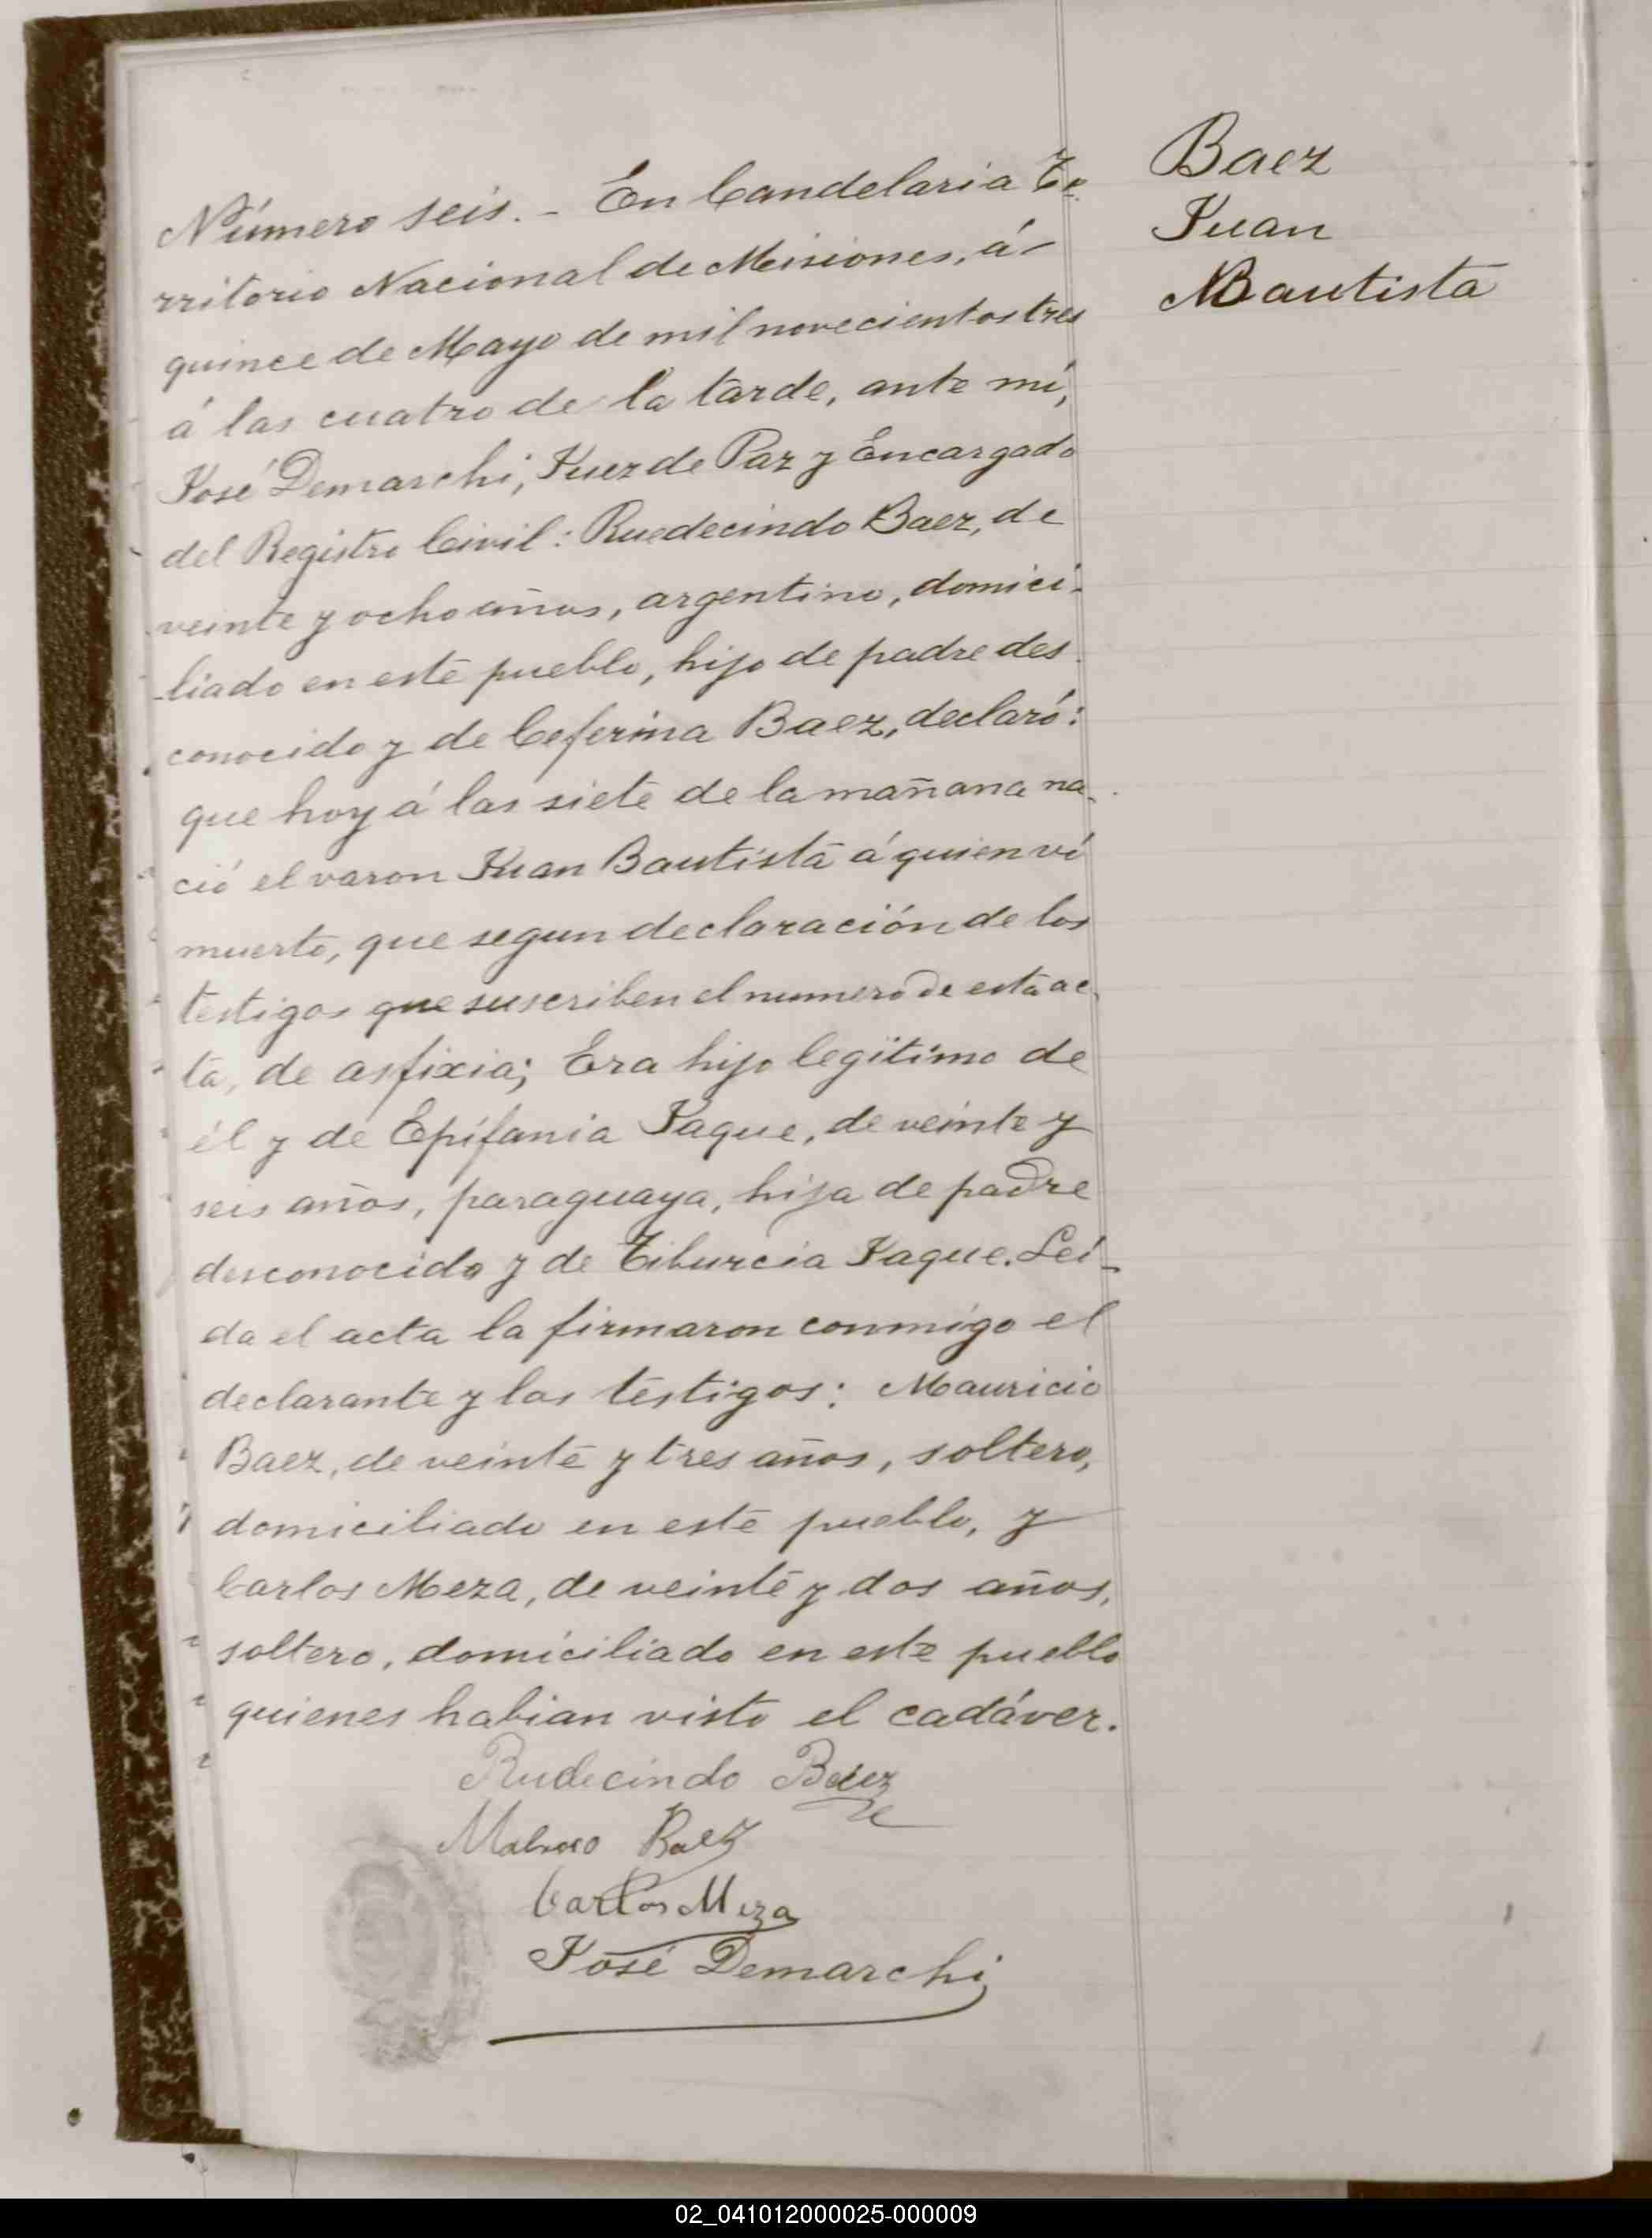 Baez
Juan
Bautista
Número seis. - En Candelaria Te-
rritorio Nacional de Misiones, á
quince de Mayo de mil novecientos tres
á las cuatro de la tarde, ante mí,
José Demarchi, Juez de Paz y Encargado
del Registro Civil: Ruedecindo Baez, de
veinte y ocho años, argentino, domici-
liado en este pueblo, hijo de padre des
conocido y de Ceferina Baez, declaró:
que hoy á las siete de la mañana na-
ció el varon Juan Bautista á quien vi
muerto, que segun declaración de los
testigos que suscriben el numero de esta ac
ta, de asfixia; Era hijo legitimo de
él y de Epifania Yaque, de veinte y
seis años, paraguaya, hija de padre
desconocido y de Tiburcia Yaque. Leí-
da el acta la firmaron conmigo el
declarante y los testigos: Mauricio
Baez, de veinte y tres años, soltero,
domiciliado en este pueblo, y
Carlos Meza, de veinte y dos años,
soltero, domiciliado en este pueblo
quienes habian visto el cadáver.
Rudecindo Baez
Baez
Carlos Meza
José Demarchi
02_041012000025-000009